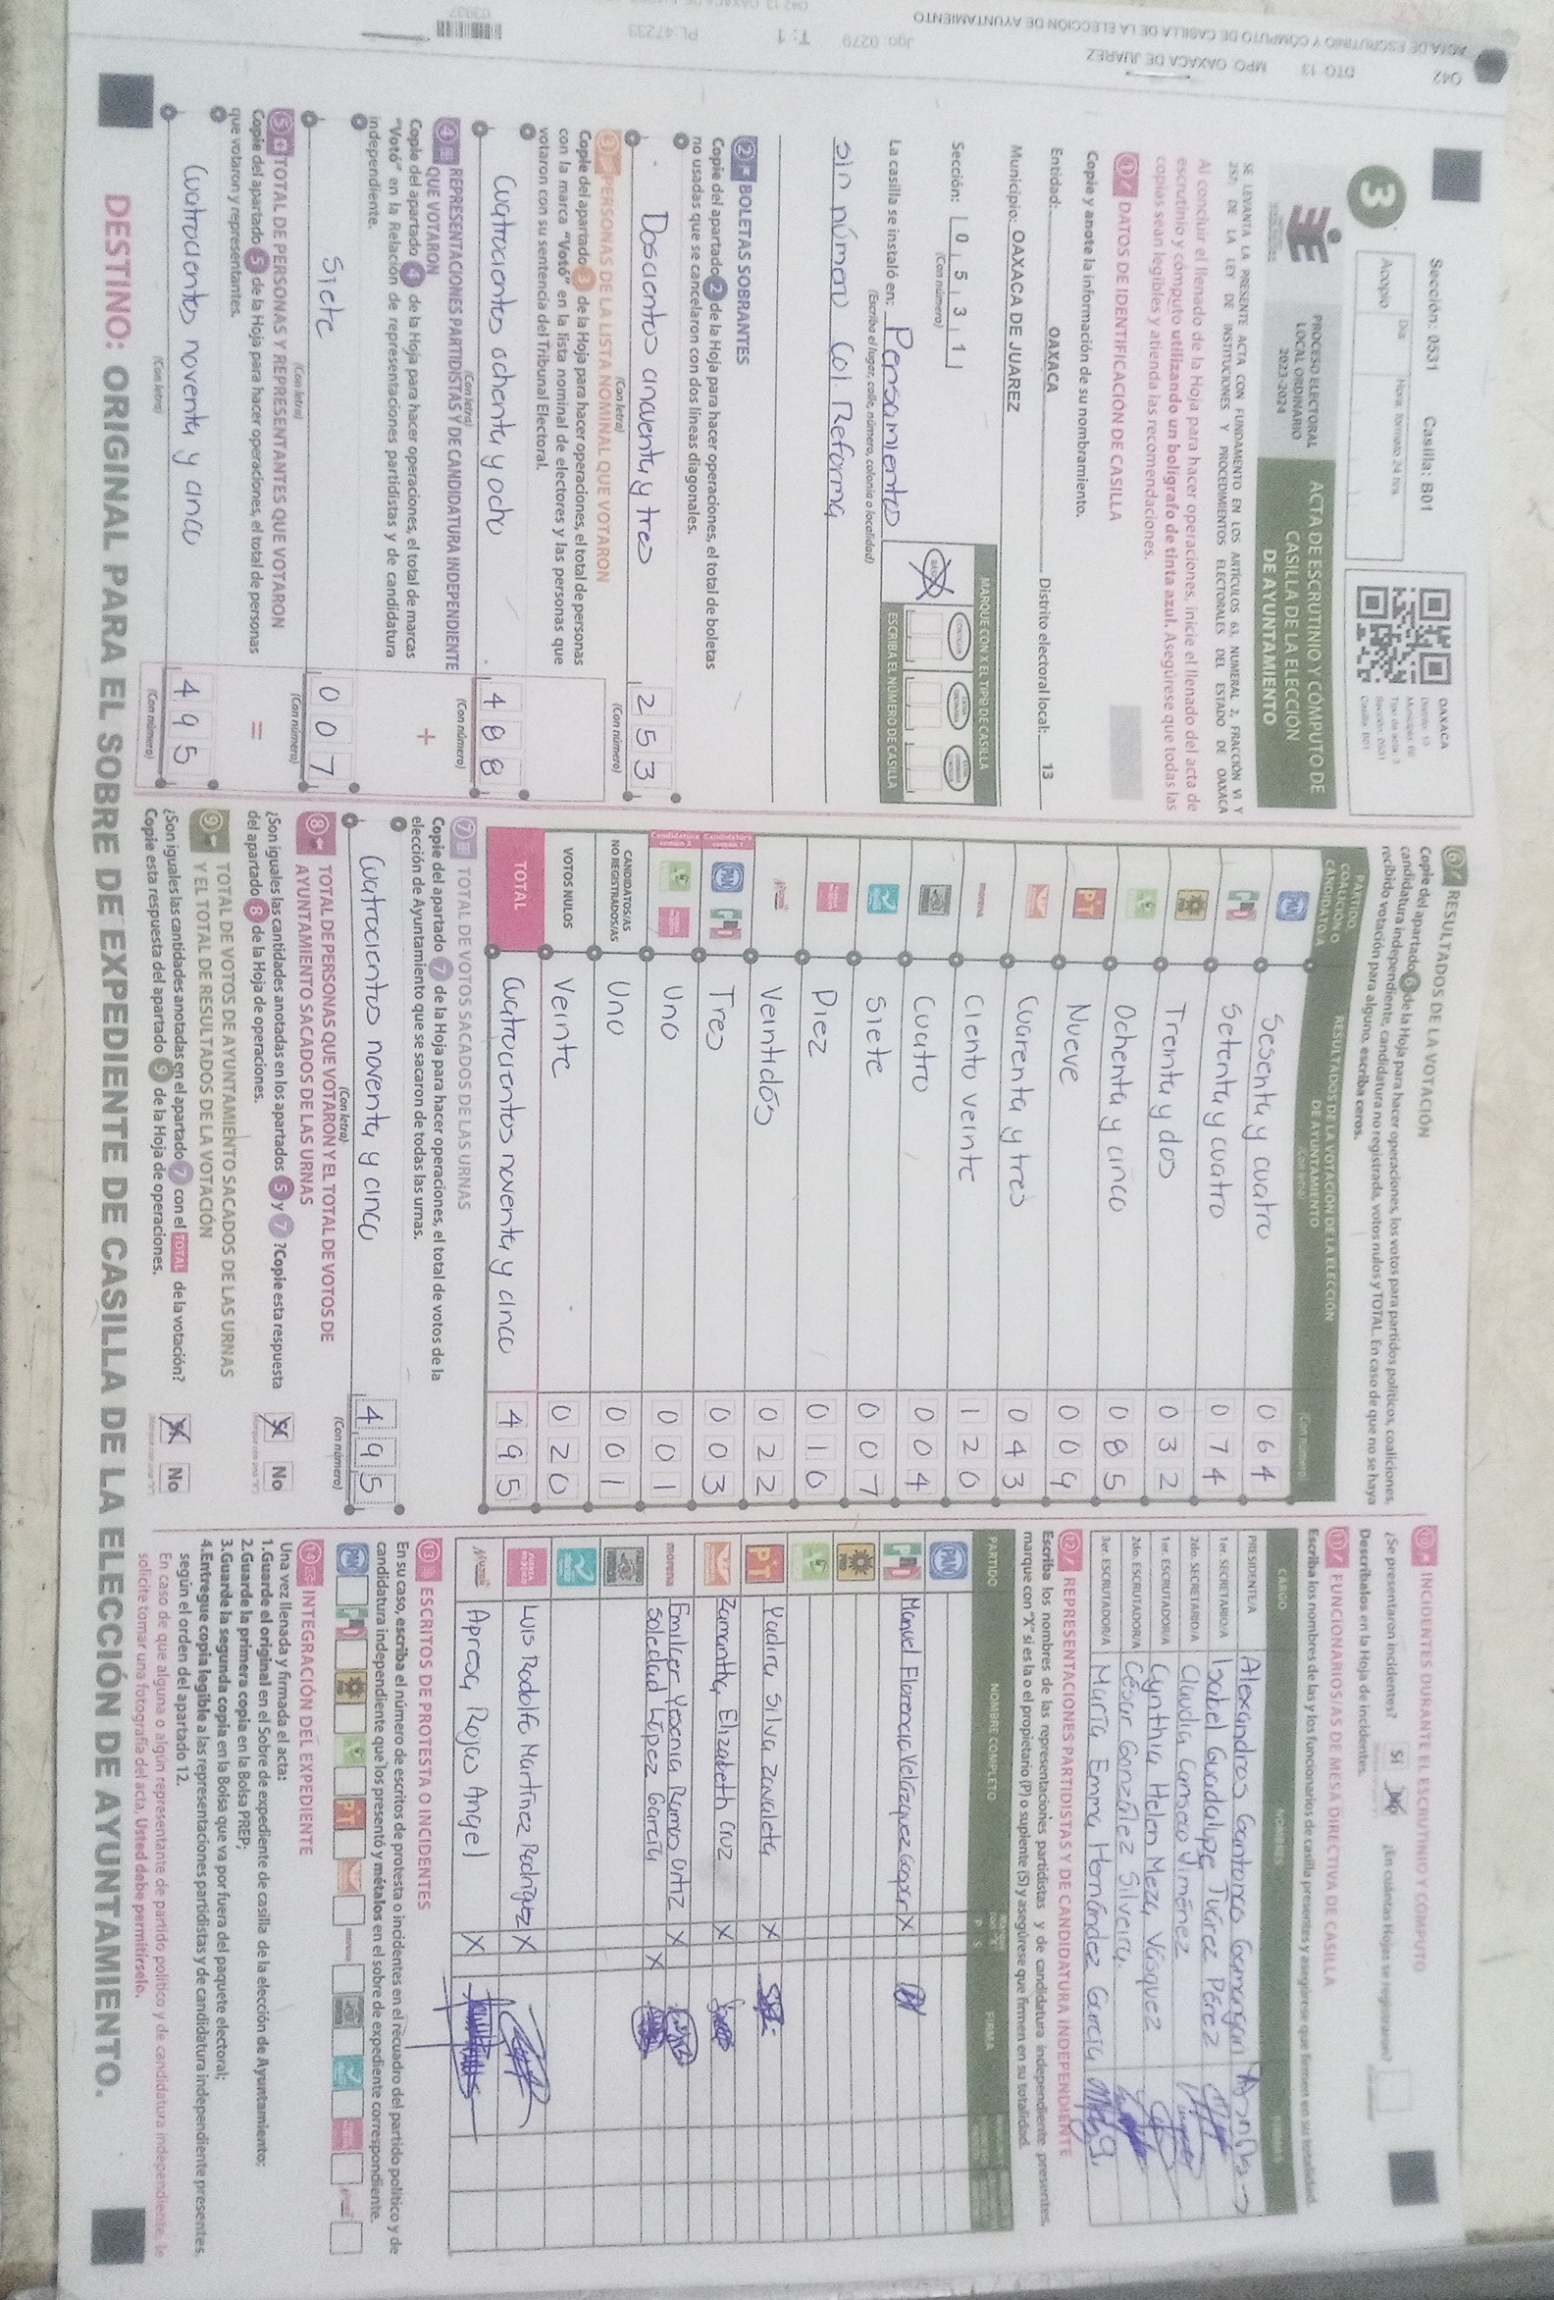 Sección: 0531 Casilla: B01
Día
Hora: formato 24 hrs
Acopio
OAXACA
3
PROCESO ELECTORAL
LOCAL ORDINARIO
2023-2024
ACTA DE ESCRUTINIO Y CÓMPUTO DE
CASILLA DE LA ELECCIÓN
DE AYUNTAMIENTO
SE LEVANTA LA PRESENTE ACTA CON FUNDAMENTO EN LOS ARTÍCULOS 63, NUMERAL 2, FRACCIÓN VI Y
257, DE LA LEY DE INSTITUCIONES Y PROCEDIMIENTOS ELECTORALES DEL ESTADO DE OAXACA
Al concluir el llenado de la Hoja para hacer operaciones, inicie el llenado del acta de
escrutinio y cómputo utilizando un bolígrafo de tinta azul. Asegúrese que todas las
copias sean legibles y atienda las recomendaciones.
1 DATOS DE IDENTIFICACIÓN DE CASILLA
Copie y anote la información de su nombramiento.
Entidad: OAXACA Distrito electoral local: 13
Municipio: OAXACA DE JUAREZ
Sección: 0 5 3 1
(Con número)
MARQUE CON X EL TIPO DE CASILLA
ESCRIBA EL NÚMERO DE CASILLA
La casilla se instaló en: Pensamientos
(Escriba el lugar, calle, número, colonia o localidad)
sin número Col Reforma
2 BOLETAS SOBRANTES
Copie del apartado 2 de la Hoja para hacer operaciones, el total de boletas
no usadas que se cancelaron con dos líneas diagonales.
Doscientos cincuenta y tres 2 5 3
(Con letra) (Con número)
3 PERSONAS DE LA LISTA NOMINAL QUE VOTARON
Copie del apartado 3 de la Hoja para hacer operaciones, el total de personas
con la marca "Votó" en la lista nominal de electores y las personas que
votaron con su sentencia del Tribunal Electoral.
Cuatrocientos ochenta y ocho 4 8 8
(Con letra) (Con número)
4 REPRESENTACIONES PARTIDISTAS Y DE CANDIDATURA INDEPENDIENTE
QUE VOTARON
Copie del apartado 4 de la Hoja para hacer operaciones, el total de marcas
"Votó" en la Relación de representaciones partidistas y de candidatura
independiente.
+
Siete 0 0 7
(Con letra) (Con número)
5 TOTAL DE PERSONAS Y REPRESENTANTES QUE VOTARON
Copie del apartado 5 de la Hoja para hacer operaciones, el total de personas
que votaron y representantes.
=
Cuatrocientos noventa y cinco 4 9 5
(Con letra) (Con número)
6 RESULTADOS DE LA VOTACIÓN
Copie del apartado 6 de la Hoja para hacer operaciones, los votos para partidos políticos, coaliciones,
candidatura independiente, candidatura no registrada, votos nulos y TOTAL. En caso de que no se haya
recibido votación para alguno, escriba ceros.
PARTIDO,
COALICIÓN O
CANDIDATO/A
RESULTADOS DE LA VOTACIÓN DE LA ELECCIÓN
DE AYUNTAMIENTO
(Con letra) (Con número)
PAN Sesenta y cuatro 0 6 4
PRI Setenta y cuatro 0 7 4
PRD Treinta y dos 0 3 2
Ochenta y cinco 0 8 5
PT Nueve 0 0 9
Cuarenta y tres 0 4 3
morena Ciento veinte 1 2 0
Cuatro 0 0 4
Siete 0 0 7
Diez 0 1 0
Veintidós 0 2 2
Candidatura común 1 PAN PRI Tres 0 0 3
Candidatura común 2 Uno 0 0 1
CANDIDATOS/AS
NO REGISTRADOS/AS Uno 0 0 1
VOTOS NULOS Veinte 0 2 0
TOTAL Cuatrocientos noventa y cinco 4 9 5
7 TOTAL DE VOTOS SACADOS DE LAS URNAS
Copie del apartado 7 de la Hoja para hacer operaciones, el total de votos de la
elección de Ayuntamiento que se sacaron de todas las urnas.
Cuatrocientos noventa y cinco 4 9 5
(Con letra) (Con número)
8 TOTAL DE PERSONAS QUE VOTARON Y EL TOTAL DE VOTOS DE
AYUNTAMIENTO SACADOS DE LAS URNAS
¿Son iguales las cantidades anotadas en los apartados 5 y 7 ?Copie esta respuesta
del apartado 8 de la Hoja de operaciones.
Sí No
9 TOTAL DE VOTOS DE AYUNTAMIENTO SACADOS DE LAS URNAS
Y EL TOTAL DE RESULTADOS DE LA VOTACIÓN
¿Son iguales las cantidades anotadas en el apartado 7 con el TOTAL de la votación?
Copie esta respuesta del apartado 9 de la Hoja de operaciones.
Sí No
10 INCIDENTES DURANTE EL ESCRUTINIO Y CÓMPUTO
¿Se presentaron incidentes? Sí No ¿En cuántas Hojas se registraron?
Descríbalos en la Hoja de incidentes.
11 FUNCIONARIOS/AS DE MESA DIRECTIVA DE CASILLA
Escriba los nombres de las y los funcionarios de casilla presentes y asegúrese que firmen en su totalidad.
CARGO NOMBRES FIRMAS
PRESIDENTE/A Alexandros Gontonco Gomargan
1er. SECRETARIO/A Isabel Guadalupe Juárez Pérez
2do. SECRETARIO/A Claudia Camero Jiménez
1er. ESCRUTADOR/A Cynthia Helen Meza Vásquez
2do. ESCRUTADOR/A César González Silveira
3er. ESCRUTADOR/A María Emma Hernández García
12 REPRESENTACIONES PARTIDISTAS Y DE CANDIDATURA INDEPENDIENTE
Escriba los nombres de las representaciones partidistas y de candidatura independiente presentes,
marque con "X" si es la o el propietario (P) o suplente (S) y asegúrese que firmen en su totalidad.
PARTIDO NOMBRE COMPLETO P S FIRMA
PAN
PRI Manuel Florencio Velázquez Gaspar X
PRD
PT Yadira Silva Zavaleta X
Zamantha Elizabeth Cruz X
morena Emilcer Yesenia Ramos Ortiz X
Soledad López García X
Luis Rodolfo Martínez Rodríguez X
Aprosa Rojas Angel X
13 ESCRITOS DE PROTESTA O INCIDENTES
En su caso, escriba el número de escritos de protesta o incidentes en el recuadro del partido político y de
candidatura independiente que los presentó y métalos en el sobre de expediente correspondiente.
14 INTEGRACIÓN DEL EXPEDIENTE
Una vez llenada y firmada el acta:
1.Guarde el original en el Sobre de expediente de casilla de la elección de Ayuntamiento;
2.Guarde la primera copia en la Bolsa PREP;
3.Guarde la segunda copia en la Bolsa que va por fuera del paquete electoral;
4.Entregue copia legible a las representaciones partidistas y de candidatura independiente presentes,
según el orden del apartado 12.
En caso de que alguna o algún representante de partido político y de candidatura independiente, le
solicite tomar una fotografía del acta, Usted debe permitírselo.
DESTINO: ORIGINAL PARA EL SOBRE DE EXPEDIENTE DE CASILLA DE LA ELECCIÓN DE AYUNTAMIENTO.
O42 DTO. 13 MPO. OAXACA DE JUAREZ
ACTA DE ESCRUTINIO Y COMPUTO DE CASILLA DE LA ELECCION DE AYUNTAMIENTO
Jgo: 0279 T: 1 PL 47233